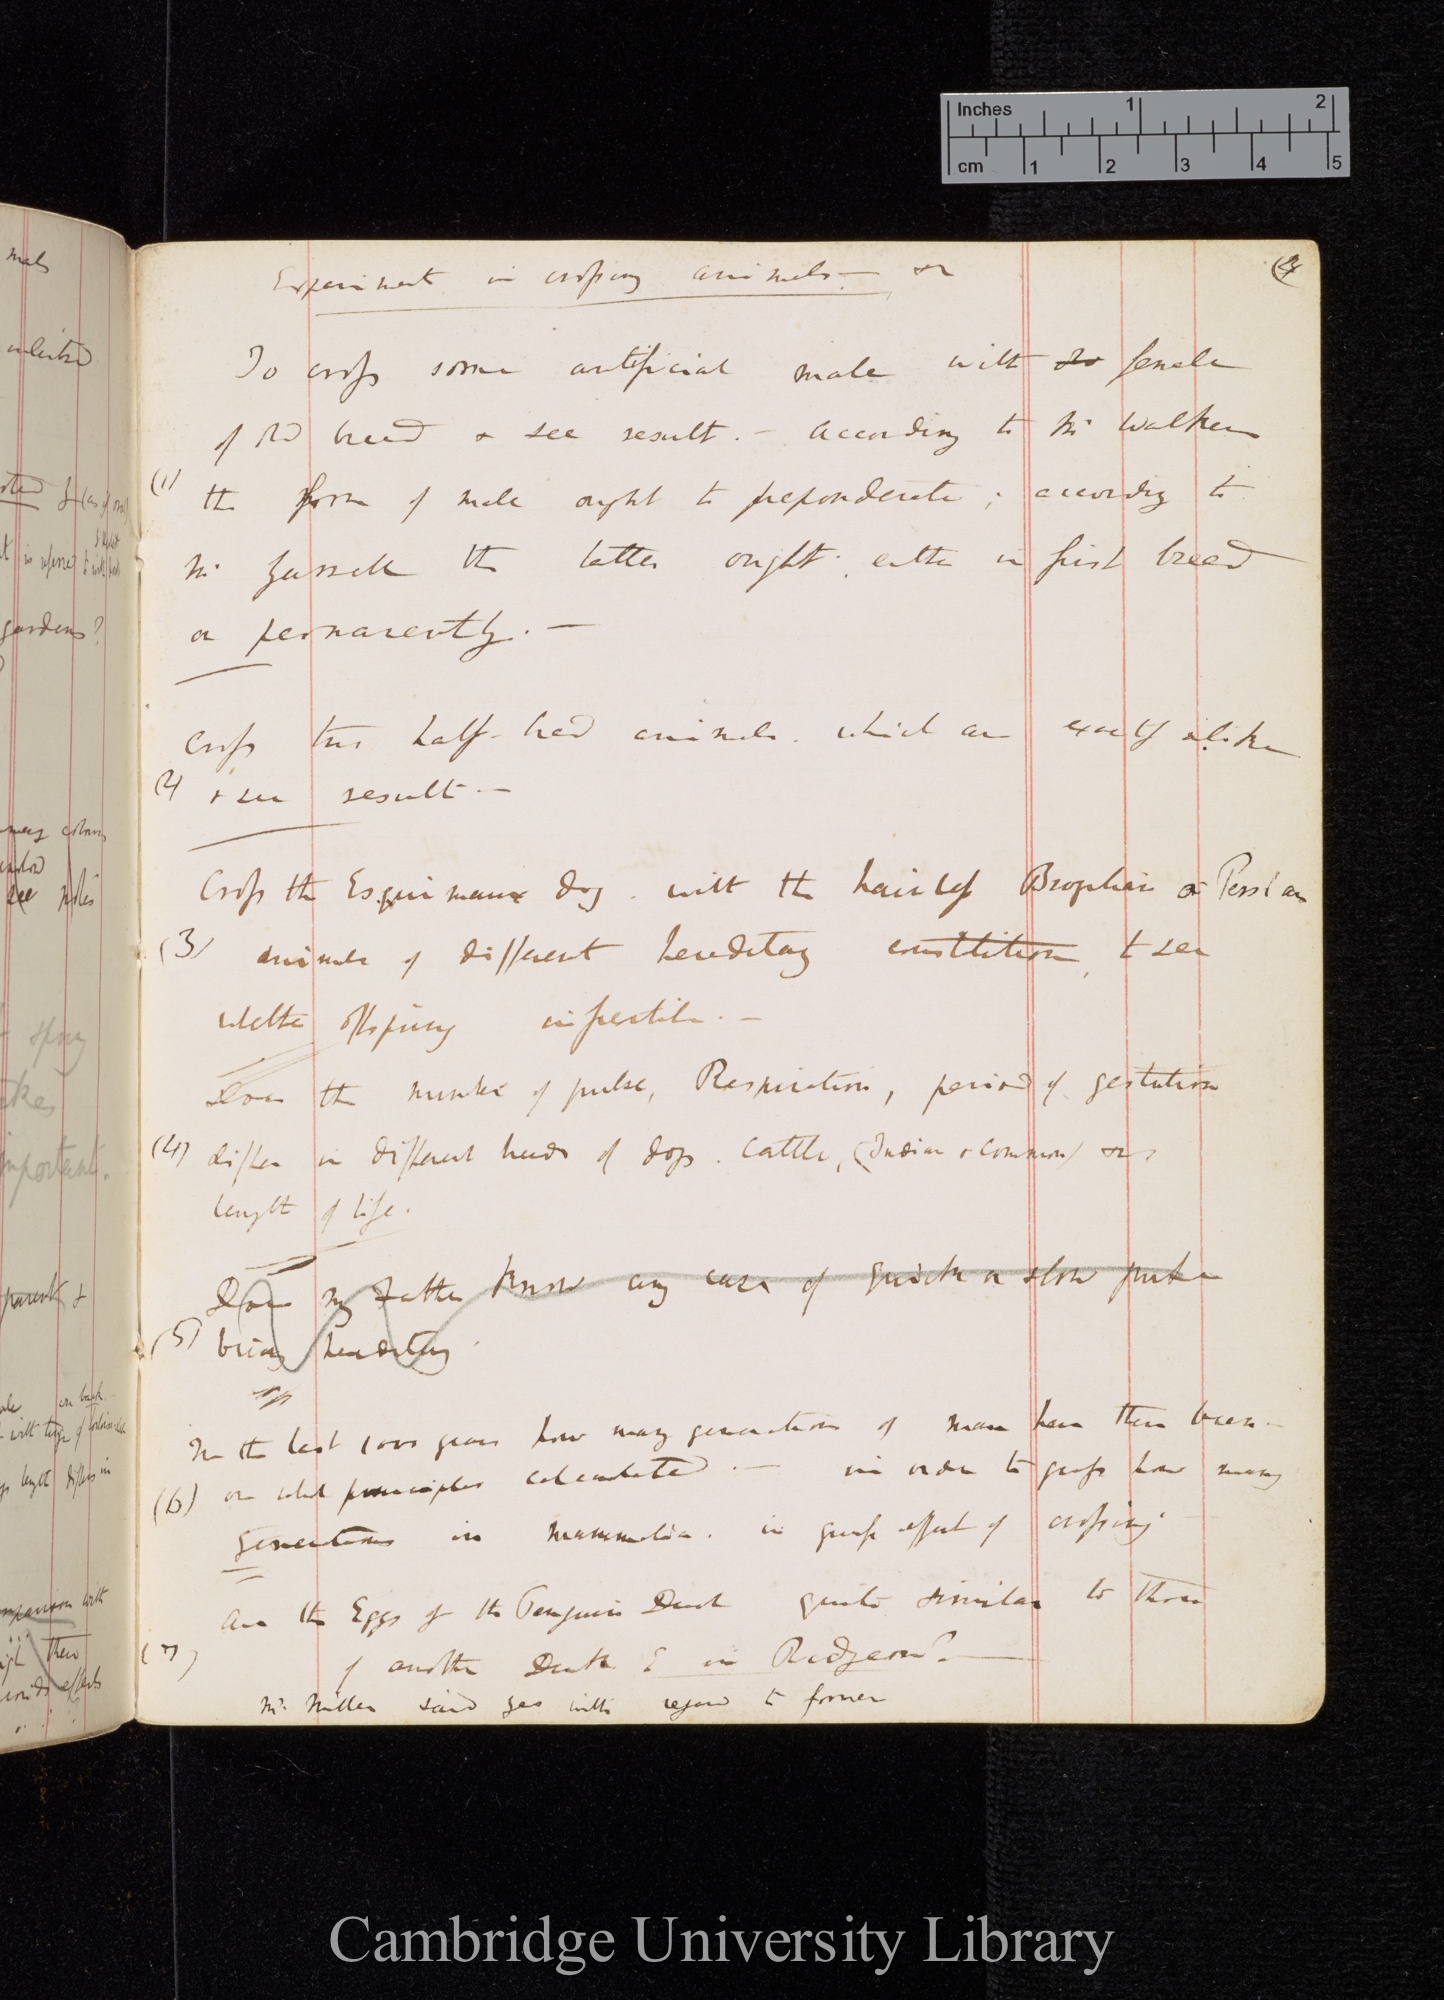 Experiment in crossing animals — &c
To cross some artificial male with old female
of old breed & see result. — According to Mr Walker
(1) the form of male ought to preponderate; according to
Mr Yarrell the latter ought. either in first breed
or permanently. —
Cross two half-bred animals. which are exactly alike
(2) & see result. —
Cross the Esquimaux dog. with the hairless Brazilian or Persian
(3) animals of different hereditary constitution, to see
whether offspring infertile. —
Does the number of pulse, Respiration, period of gestation
(4) differ in different breeds of dogs. Cattle, (Indian & Common) &c
length of life.
Does my Father know any case of quick or slow pulse
(5) being hereditary
In the last 1000 years how many generations of man have there been —
(6) on what principles calculated. — in order to guess how many
generations in mammalia. in guess effect of crossing.
Are the Eggs of the Penguin Duck quite similar to those
(7) of another Duck & in Pidgeons? —
Mr. Miller said yes with regard to former
gardens?
see notes
important.
parent &
Inches 1 2
cm 1 2 3 4 5
Cambridge University Library